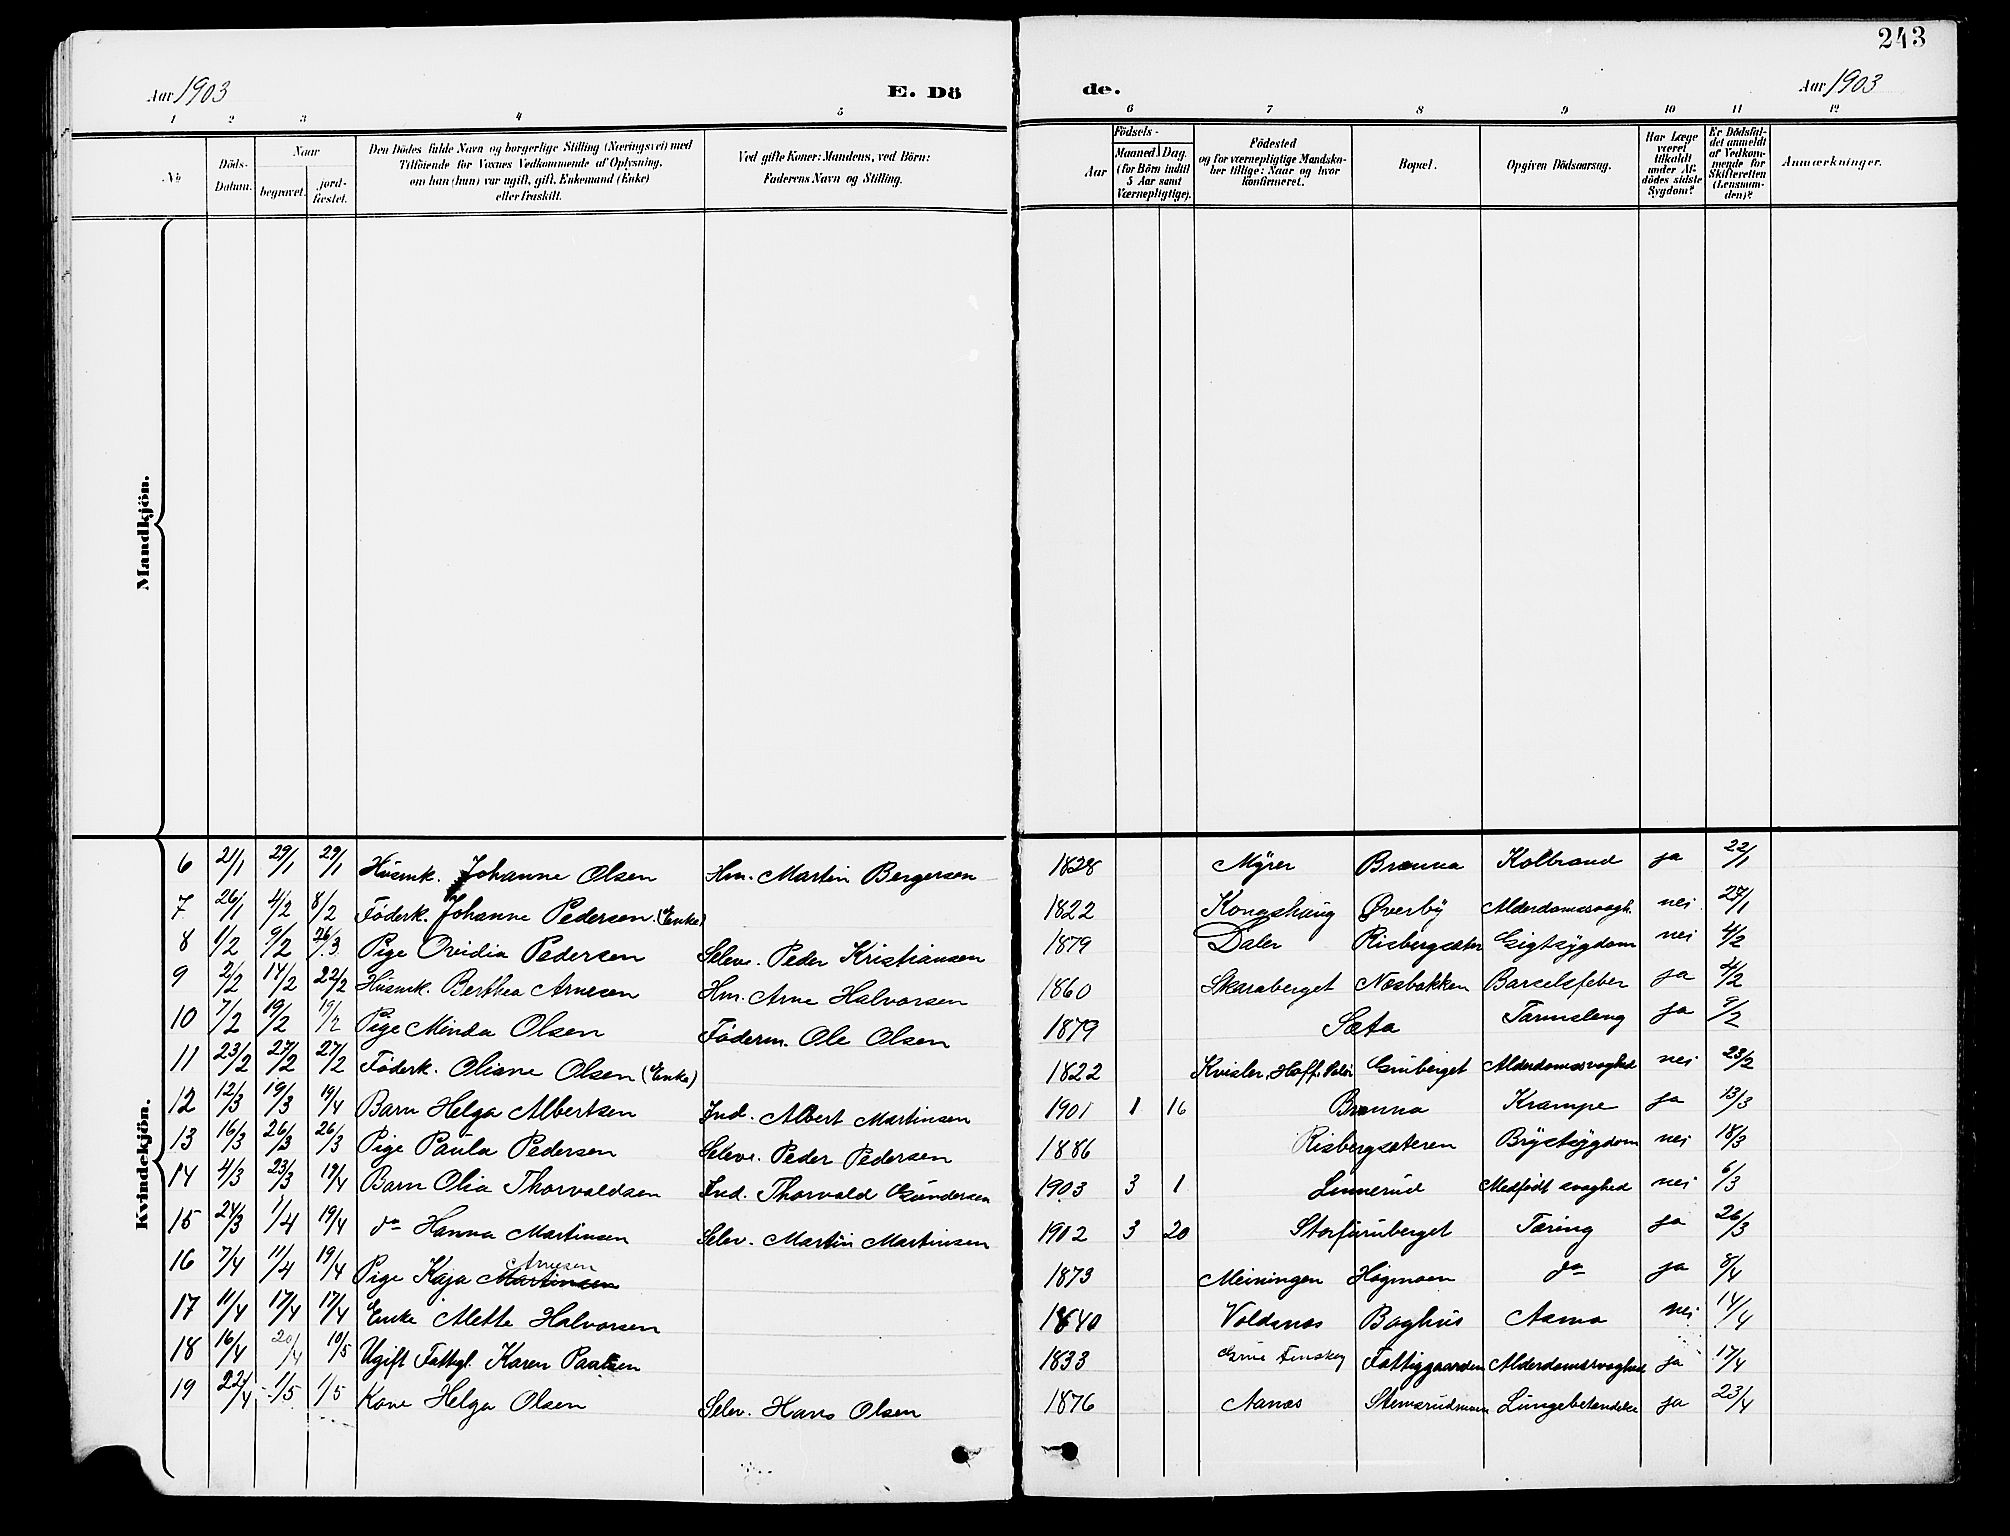 243
Aar 1903
E. Dö
de.
Aar 1903
1 2 3 4 5 6 7 8 9 10 11 12
No
Döds-Datum.
Naar
begravet.
jord-fæstet.
Den Dödes fulde Navn og borgerlige Stilling (Næringsvei) med
Tilföiende for Voxnes Vedkommende af Oplysning,
om han (hun) var ugift, gift, Enkemand (Enke)
eller fraskilt.
Ved gifte Koner: Mandens, ved Börn:
Faderens Navn og Stilling.
Födsels-
Aar
Maaned. Dag.
(for Börn indtil
5 Aar samt
Værnepligtige).
Födested
og for værnepligtige Mandska-
ber tillige: Naar og hvor
konfirmeret.
Bopæl.
Opgiven Dödsaarsag.
Har Læge
været
tilkaldt
under Af-
dödes sidste
Sygdom?
Er Dödsfal-
det anmeldt
af Vedkom-
mende for
Skifteretten
(Lensman-
den)?
Anmærkninger.
Mandkjön.
Kvindekjön.
6 21/1 29/1 29/1 Husmk. Johanne Olsen Hm. Martin Bergersen 1828 Myrer Brænna Kolbrand ja 22/1
7 26/1 4/2 8/2 Føderk. Johanne Pedersen (Enke) 1822 Kongshaug Øverby Alderdomssvagh. nei 27/1
8 1/2 9/2 26/3 Pige Ovidia Pedersen Seleve. Peder Kristiansen 1879 Daler Risbergsæter Gigtsygdom nei 4/2
9 2/2 14/2 22/2 Husmk. Berthea Arnesen Hm. Arne Halvorsen 1860 Skaraberget Næsbakken Barselsfeber ja 4/2
10 7/2 19/2 19/2 Pige Minda Olsen Føderm. Ole Olsen 1879 Sæta Tarmsleng ja 9/2
11 23/2 27/2 27/2 Føderk. Oliane Olsen (Enke) 1822 Kvisler, Hoff, Solør Gruberget Alderdomssvaghed nei 23/2
12 12/3 19/3 19/4 Barn Helga Albertsen Ind. Albert Martinsen 1901 1 16 Brænna Krampe ja 13/3
13 16/3 26/3 26/3 Pige Paula Pedersen Seleve. Peder Pedersen 1886 Risbergsæteren Brystsygdom nei 18/3
14 4/3 23/3 19/4 Barn Olia Thorvaldsen Ind. Thorvald Gundersen 1903 3 1 Linnerud Medfødt svaghed nei 6/3
15 24/3 1/4 19/4 do Hanna Martinsen Selev. Martin Martinsen 1902 3 20 Storfuruberget Tæring ja 26/3
16 7/4 11/4 19/4 Pige Kaja Martinsen Arnesen 1873 Meiningen Høgmoen do ja 8/4
17 11/4 17/4 17/4 Enke Mette Halvorsen 1840 Voldnæs Baghus Asma nei 14/4
18 16/4 20/4 10/5 Ugift Fattgl. Karen Paulsen 1833 Grue Finskog Fattiggaarden Alderdomssvaghed ja 17/4
19 22/4 1/5 1/5 Kone Helga Olsen Selev. Hans Olsen 1876 Aanæs Stemsrudmoen Lungebetændelse ja 23/4